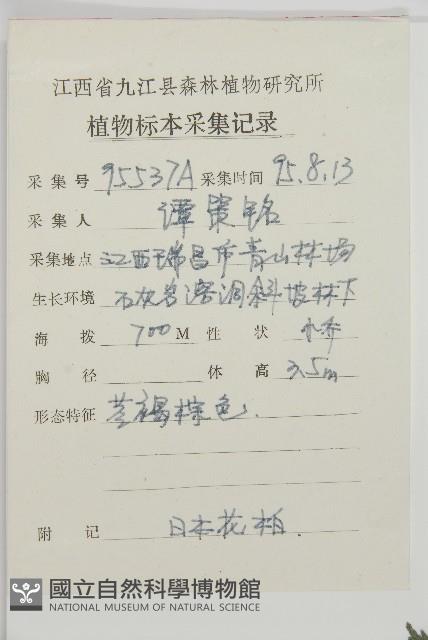 江西省九江县森林植物研究所
植物标本采集记录
采集号 95537A 采集时间 95.8.13
采集人 谭策铭
采集地点 江西瑞昌市青山林场
生长环境 石灰岩溶洞斜坡林下
海拨 700 M 性状 小乔
胸径 体高 3.5m
形态特征 茎褐棕色.
附记 日本花柏.
國立自然科學博物館
NATIONAL MUSEUM OF NATURAL SCIENCE